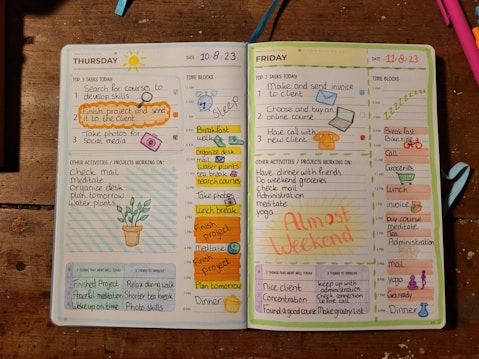 THURSDAY
DATE: 10/8/23
TOP 3 TASKS TODAY
1 Search for courses to
develop skills
2 Finish project and send
it to the client
3 Take photos for
Social media
OTHER ACTIVITIES / PROJECTS WORKING ON:
Check mail
Meditate
Organize desk
Plan tomorrow
Water plants
TIME BLOCKS
Sleep
Breakfast
walk
Organize desk
mail
Water plants
tea break
search courses
Take photos
Lunch break
Finish
project
Meditate
Finish
project
Plan tomorrow
Dinner
3 THINGS THAT WENT WELL TODAY
Finished Project
Peaceful meditation
Woke up on time
3 THINGS TO IMPROVE
Relax during walk
Shorter tea break
Photo skills
FRIDAY
DATE: 11/8/23
TOP 3 TASKS TODAY
1 Make and send invoice
to client
2 Choose and buy an
online course
3 Have call with
new client
OTHER ACTIVITIES / PROJECTS WORKING ON:
Have dinner with friends
Do weekend groceries
check mail
Administration
meditate
yoga
Almost
Weekend
TIME BLOCKS
zzzzzzzzz
Breakfast
Bike ride
Call
Groceries
Lunch
invoice
buy course
meditate
Tea
Administration
mail
yoga
Get ready
Dinner
3 THINGS THAT WENT WELL TODAY
Nice client
Concentration
Found a good course
3 THINGS TO IMPROVE
keep up with
administration
Check connection
before call
Make grocery list